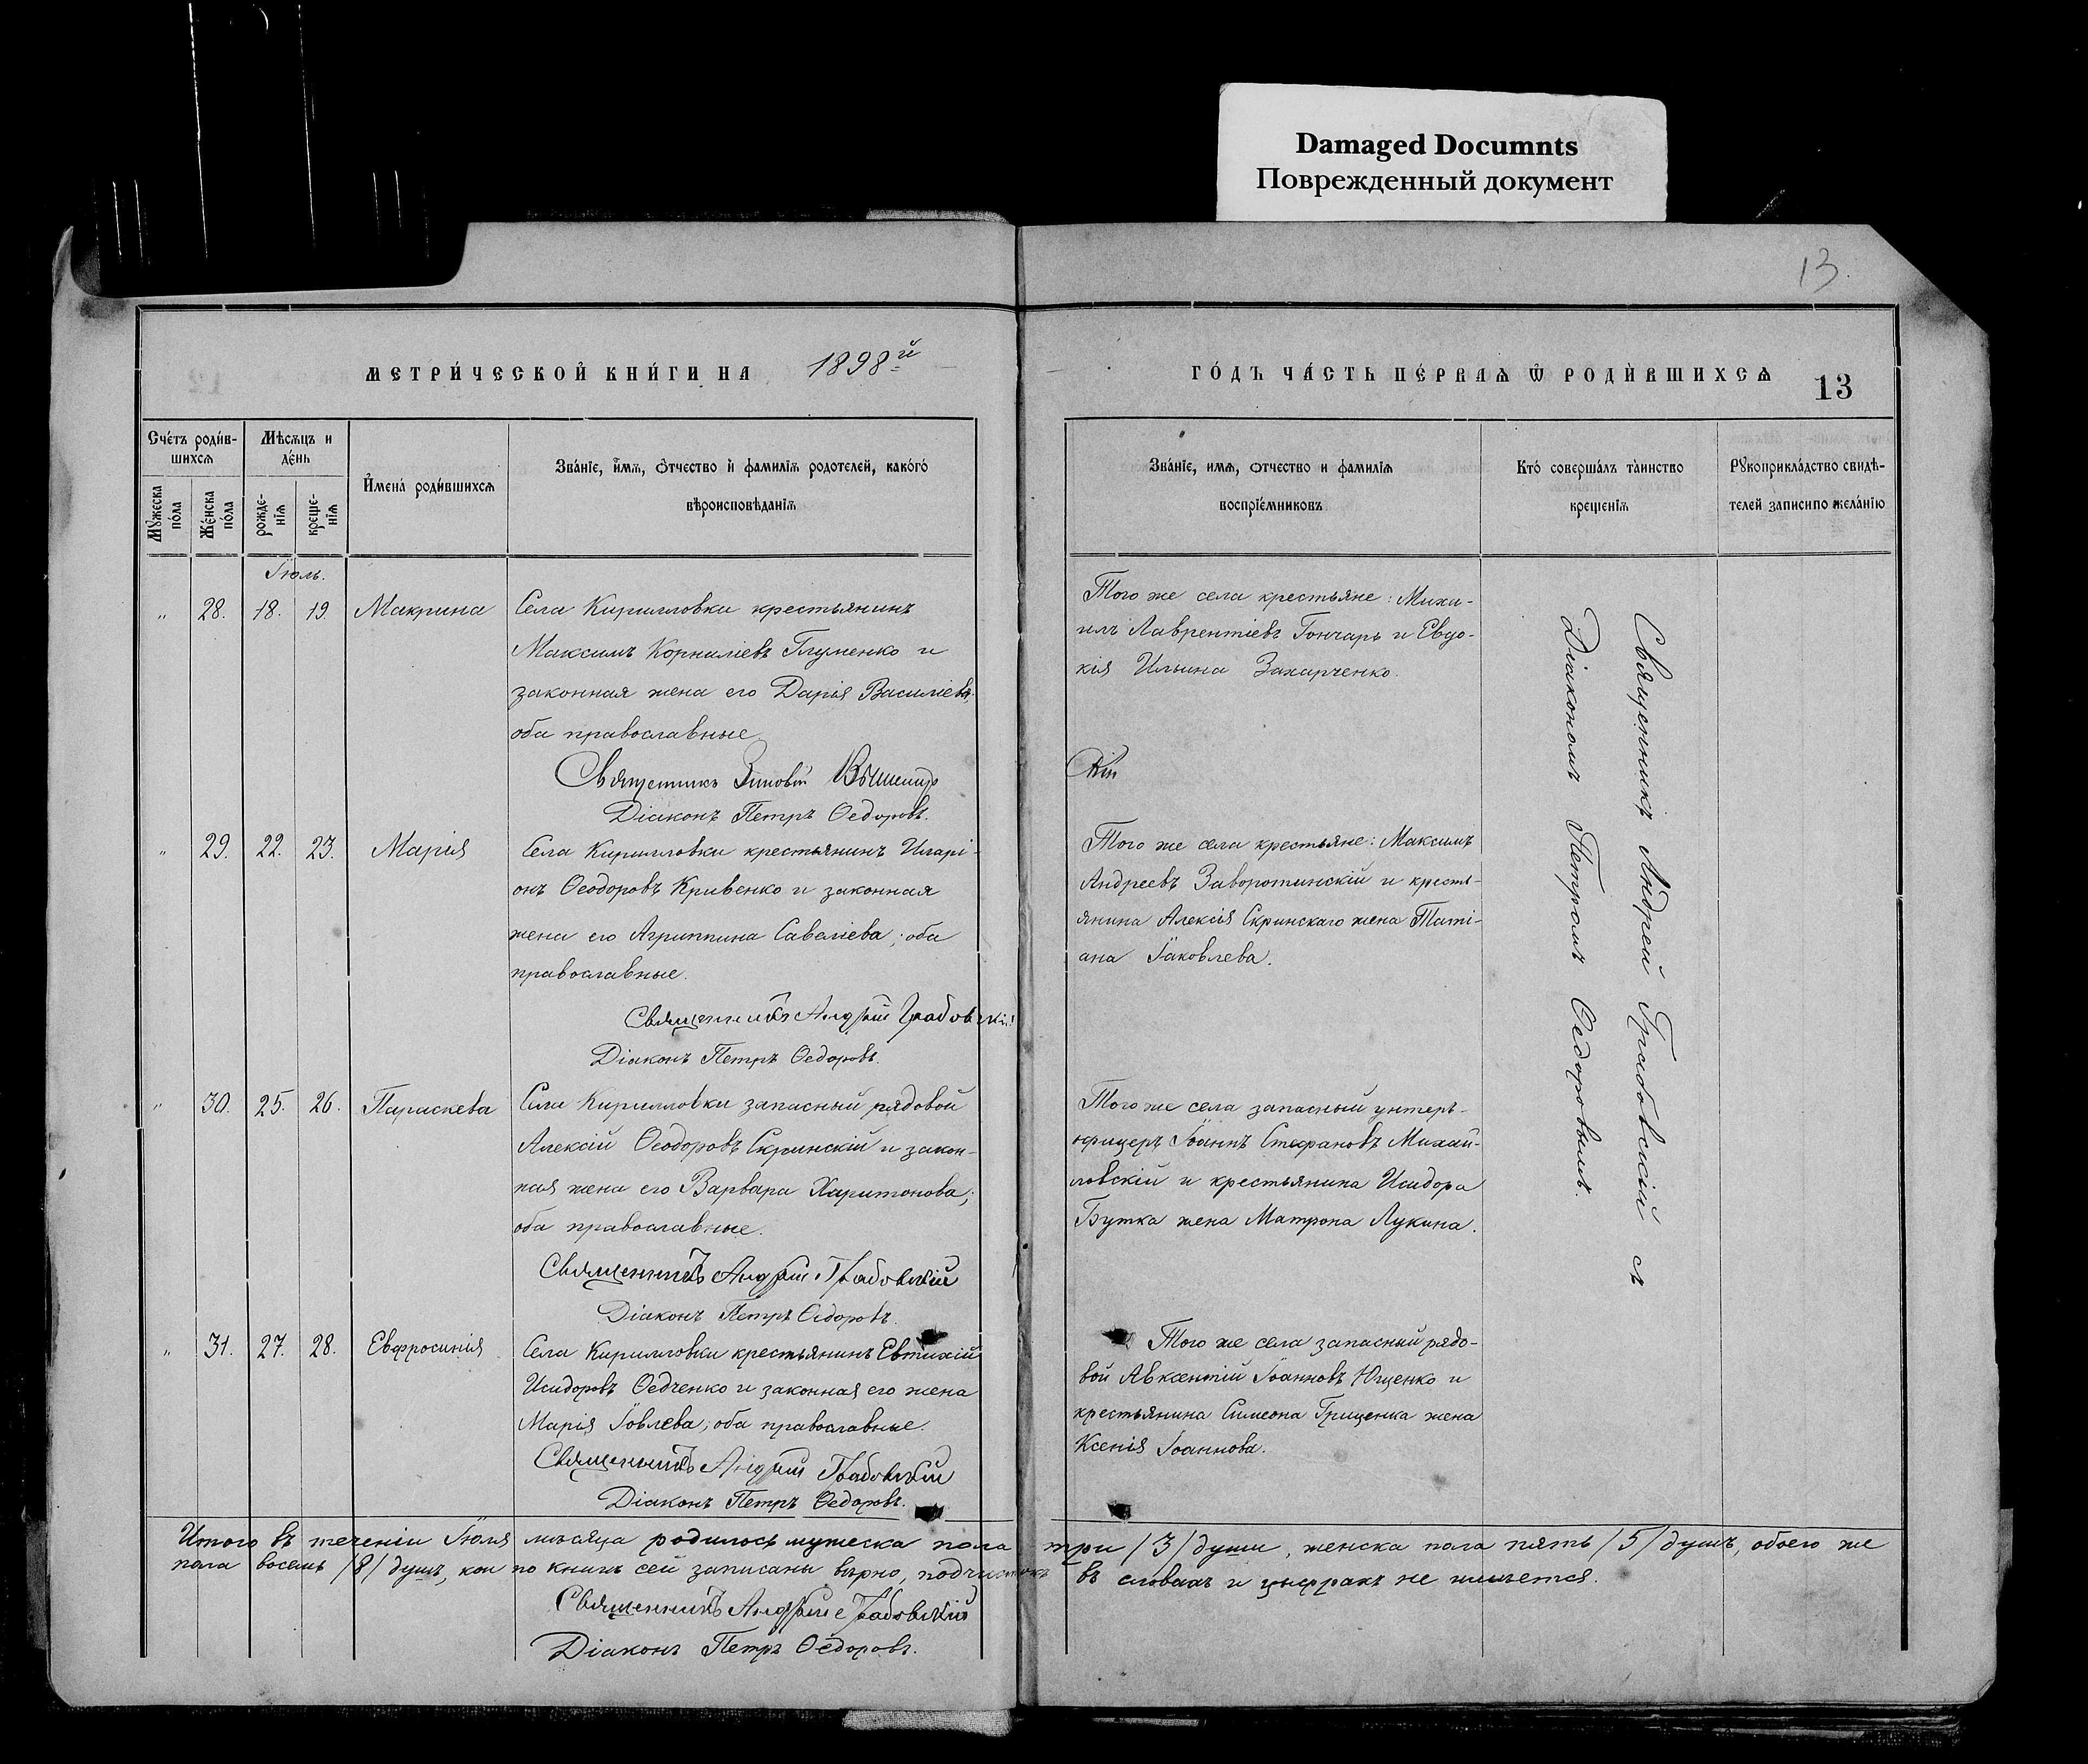 Damaged Documnts
Поврежденный документ
13.
МЕТРИ́ЧЕСКОЙ КНИ́ГИ НА 1898й
ГО́ДЪ ЧА́СТЬ ПЕ́РВАѦ Ѿ РОДИ́ВШИХСѦ 13
Сче́тъ роди́в-
шихсѧ
Мѣсѧцъ и
де́нь
Мꙋжеска
по́ла
Же́нска
по́ла
рожде-
нїѧ
креще-
нїѧ
И҆мена́ роди́вшихсѧ
Зва́нїе, и҆́мѧ, ѻ҆́тчество и҆ фамилїѧ родотелей, како́гѡ
вѣроисповѣданїѧ
Зва́нїе, имѧ, ѻтчество и фамилїѧ
воспрїе́мниковъ
Кто́ соверша́лъ та́инство
крещенїѧ
Рꙋкоприкла́дство свидѣ-
телей записипо жела́нїю
Іюль.
" 28. 18. 19. Макрина
Села Кирилловки крестьянинъ
Максимъ Корниліевъ Глуменко и
законная жена его Дарія Василіева,
оба православные
Священникъ Зиновій
Діаконъ Петръ Ѳедоровъ.
Того же села крестьяне: Миха-
илъ Лаврентіевъ Гончарь и Евдо-
кія Ильина Захарченко.
" 29. 22. 23. Марія
Села Кирилловки крестьянинъ Иларі-
онъ Ѳеодоровъ Кривенко и законная
жена его Агриппина Савеліева; оба
православные.
Священникъ Андрей Грабовскій
Діаконъ Петръ Ѳедоровъ.
Того же села крестьяне: Максимъ
Андреевъ Заворотинскій и кресть-
янина Алексія Скринскаго жена Таті-
ана Іаковлева.
" 30. 25. 26. Параскева
Села Кирилловки запасный рядовой
Алексій Ѳеодоровъ Скринскій и закон-
ная жена его Варвара Харитонова;
оба православные.
Священникъ Андрей Грабовскій
Діаконъ Петръ Ѳедоровъ.
Того же села запасный унтеръ-
офицеръ Іоаннъ Стефановъ Михай-
ловскій и крестьянина Исидора
Бутка жена Матрона Лукина.
" 31. 27. 28. Евфросинія
Села Кирилловки крестьянинъ Евтихій
Исидоровъ Ѳедченко и законная его жена
Марія Іовлева; оба православные.
Священникъ Андрей Грабовскій
Діаконъ Петръ Ѳедоровъ.
Того же села запасный рядо-
вой Авксентій Іоанновъ Ющенко и
крестьянина Симеона Гриценка жена
Ксенія Іоаннова.
Священникъ Андрей Грабовскій съ
Діакономъ Петромъ Ѳедоровымъ.
Итого въ теченіи Іюля мѣсяца родилось мужеска пола три /3/ души, женска пола пять /5/ душъ, обоего же
пола восемь /8/ душъ, кои по книгѣ сей записаны вѣрно, подчистокъ въ словахъ и цыфрахъ не имѣется.
Священникъ Андрей Грабовскій
Діаконъ Петръ Ѳедоровъ.